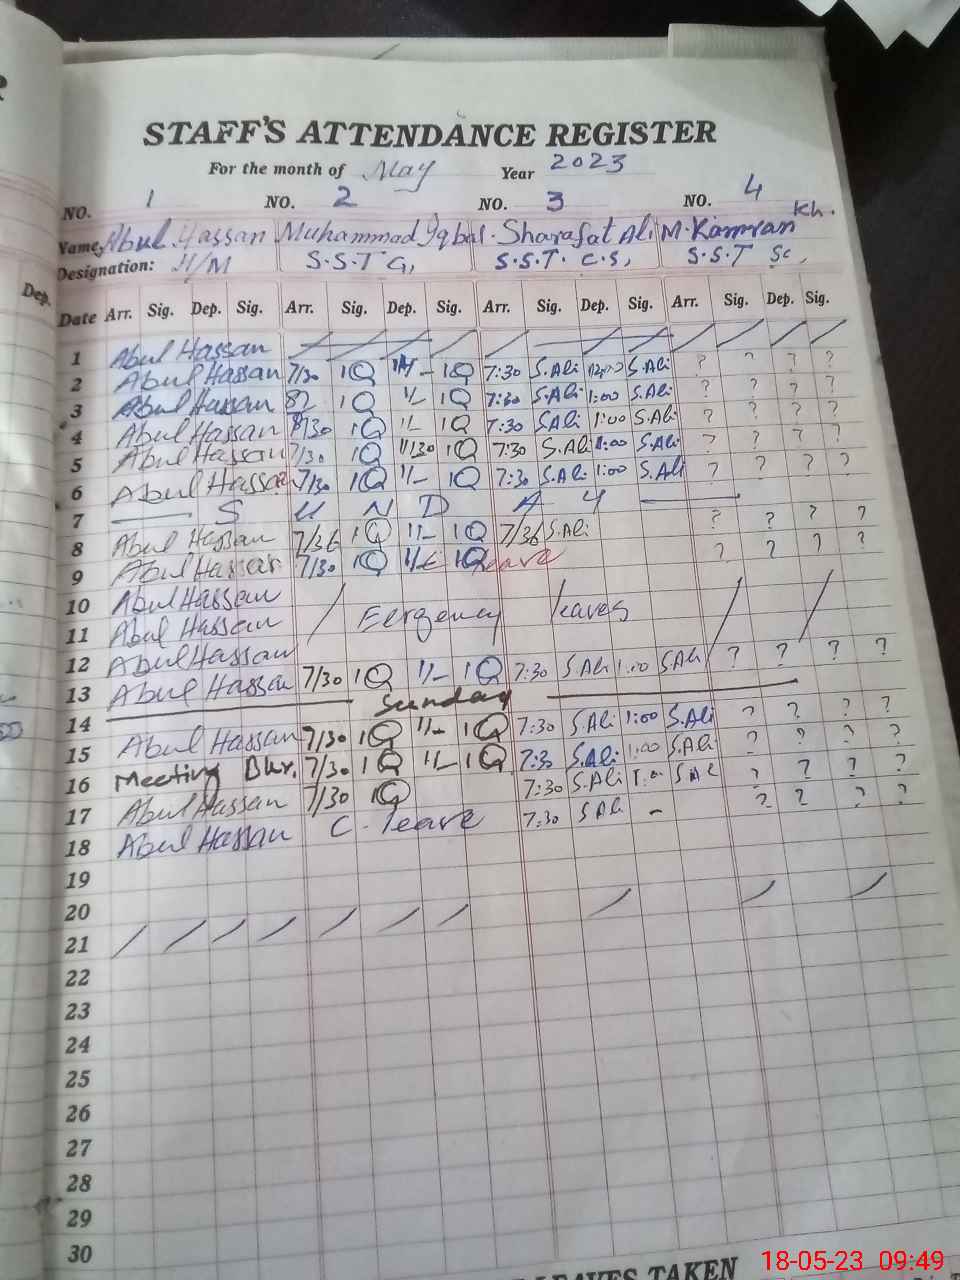 STAFF'S ATTENDANCE REGISTER
For the month of May Year 2023
NO. 1 NO. 2 NO. 3 NO. 4
Name, Abul Hassan Muhammad Iqbal. Sharafat Ali M. Kamran Kh.
Designation: H/M S.S.T G, S.S.T. C.S, S.S.T Sc,
Dep.
Date Arr. Sig. Dep. Sig. Arr. Sig. Dep. Sig. Arr. Sig. Dep. Sig. Arr. Sig. Dep. Sig.
1 Abul Hassan
2 Abul Hassan 7/30 7:30 S.Ali S.Ali ? ? ? ?
3 Abul Hassan 7:30 S.Ali 1:00 S.Ali ? ? ? ?
4 Abul Hassan 7:30 S.Ali 1:00 S.Ali ? ? ? ?
5 Abul Hassan 7/30 11/30 7:30 S.Ali 1:00 S.Ali ? ? ? ?
6 Abul Hassan 7/30 7:30 S.Ali 1:00 S.Ali ? ? ? ?
7 S U N D A Y
8 Abul Hassan 7/36 7/36 S.Ali ? ? ? ?
9 Abul Hassan 7/30 leave ? ? ? ?
10 Abul Hassan
11 Abul Hassan Eergency leaves
12 Abul Hassan
13 Abul Hassan 7/30 7:30 S.Ali 1:00 S.Ali ? ? ? ?
14 Sunday
15 Abul Hassan 7/30 7:30 S.Ali 1:00 S.Ali ? ? ? ?
16 Meeting Bkr. 7/30 7:30 S.Ali 1:00 S.Ali ? ? ? ?
17 Abul Hassan 7/30 7:30 S.Ali ? ? ? ?
18 Abul Hassan C. leave 7:30 S Ali - ? ? ? ?
19
20
21
22
23
24
25
26
27
28
29
30
LEAVES TAKEN
18-05-23 09:49